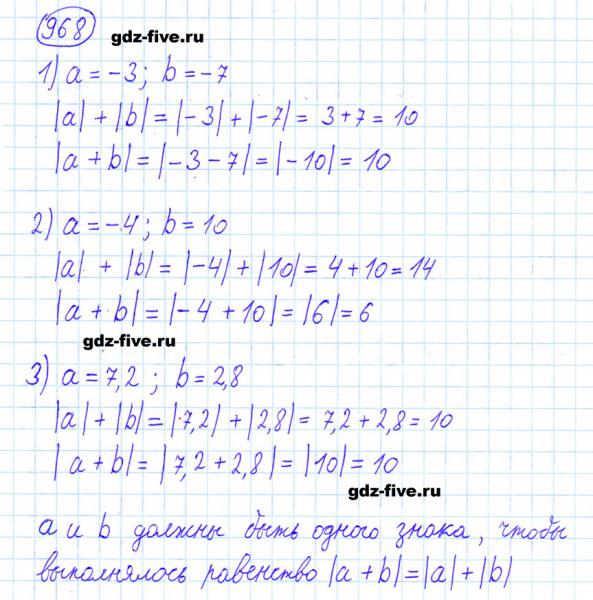 968
gdz-five.ru
1) a = -3; b = -7
|a| + |b| = |-3| + |-7| = 3+7 = 10
|a + b| = |-3 - 7| = |-10| = 10
2) a = -4; b = 10
|a| + |b| = |-4| + |10| = 4 + 10 = 14
|a + b| = |-4 + 10| = |6| = 6
gdz-five.ru
3) a = 7,2 ; b = 2,8
|a| + |b| = |7,2| + |2,8| = 7,2 + 2,8 = 10
|a + b| = |7,2 + 2,8| = |10| = 10
gdz-five.ru
a и b должны быть одного знака, чтобы
выполнялось равенство |a + b| = |a| + |b|